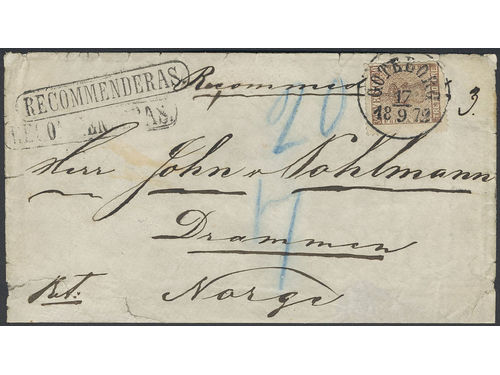 RECOMMENDERAS.
RECOMMENDERAS.
Recommend
GÖTEBORG
17
18 9 72
3.
20
Herr John v. Nohlmann
Drammen
Norge